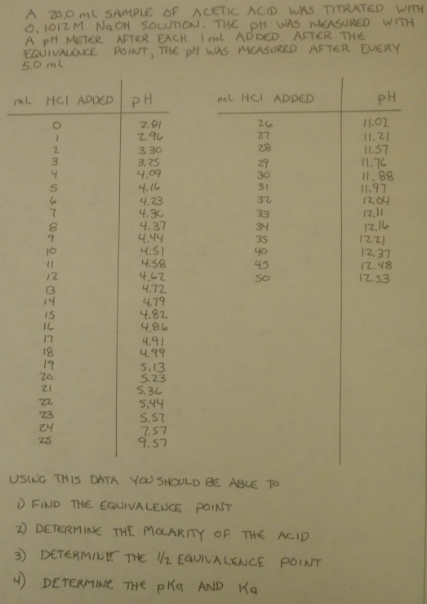 A 20.0 mL SAMPLE OF ACETIC ACID WAS TITRATED WITH
0.1012 M NaOH SOLUTION. THE pH WAS MEASURED WITH
A pH METER AFTER EACH 1 mL ADDED. AFTER THE
EQUIVALENCE POINT, THE pH WAS MEASURED AFTER EVERY
5.0 mL
mL HCl ADDED pH
0 2.81
1 2.96
2 3.30
3 3.75
4 4.09
5 4.16
6 4.23
7 4.30
8 4.37
9 4.44
10 4.51
11 4.58
12 4.62
13 4.72
14 4.79
15 4.82
16 4.86
17 4.91
18 4.99
19 5.13
20 5.23
21 5.36
22 5.44
23 5.57
24 7.57
25 9.57
mL HCl ADDED pH
26 11.02
27 11.21
28 11.57
29 11.76
30 11.88
31 11.97
32 12.04
33 12.11
34 12.16
35 12.21
40 12.37
45 12.48
50 12.53
USING THIS DATA YOU SHOULD BE ABLE TO
1) FIND THE EQUIVALENCE POINT
2) DETERMINE THE MOLARITY OF THE ACID
3) DETERMINE THE 1/2 EQUIVALENCE POINT
4) DETERMINE THE pKa AND Ka